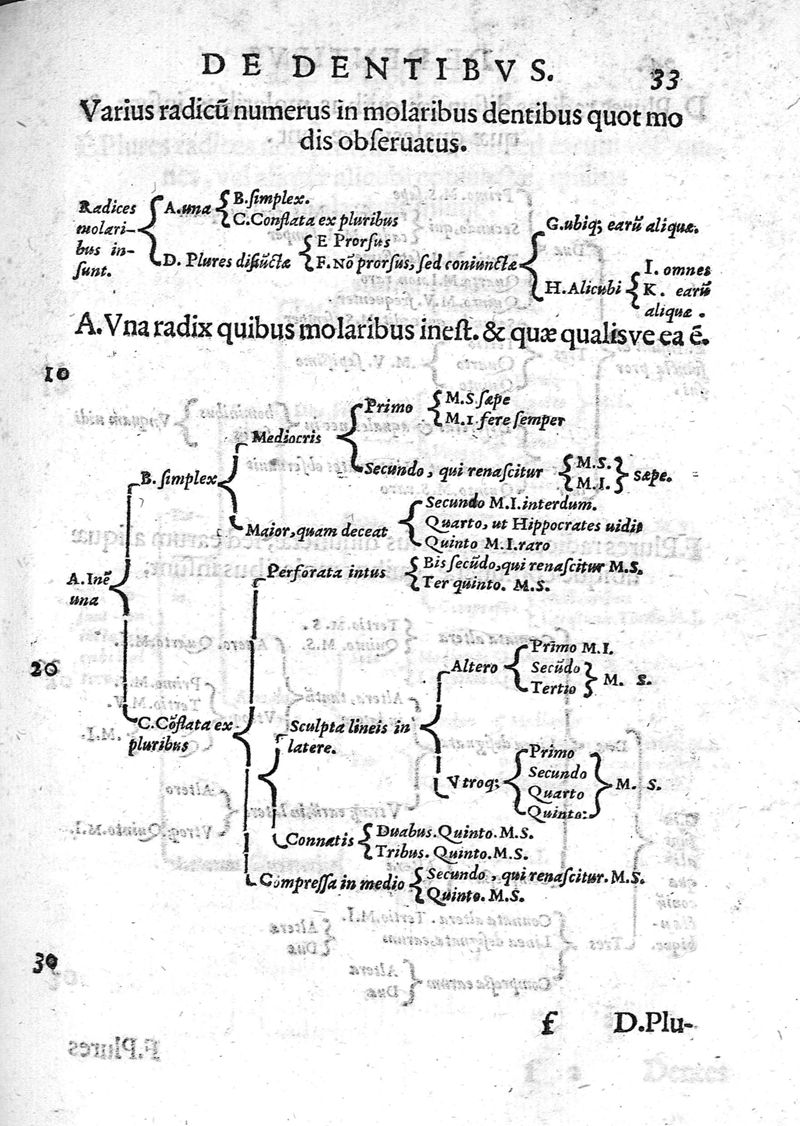 DE DENTIBVS. 33
Varius radicũ numerus in molaribus dentibus quot mo
dis obſeruatus.
Radices
molari-
bus in-
ſunt.
A. una
B. ſimplex.
C. Conflata ex pluribus
D. Plures diſiũctæ
E Prorſus
F. Nõ prorſus, ſed coniunctæ
G. ubiq; earũ aliquæ.
H. Alicubi
I. omnes
K. earũ
aliquæ.
A. Vna radix quibus molaribus ineſt. & quæ qualisve ea ẽ.
10
A. Inẽ
una
B. ſimplex
Mediocris
Primo
M. S. ſæpe
M. I. fere ſemper
Secundo, qui renaſcitur
M. S.
M. I.
sæpe.
Maior, quam deceat
Secundo M. I. interdum.
Quarto, ut Hippocrates uidit
Quinto M. I. raro
20
C. Cõflata ex
pluribus
Perforata intus
Bis ſecũdo, qui renaſcitur M. S.
Ter quinto. M. S.
Sculpta lineis in
latere.
Altero
Primo M. I.
Secũdo
Tertio
M. S.
Vtroq;
Primo
Secundo
Quarto
Quinto:
M. S.
Connatis
Duabus. Quinto. M. S.
Tribus. Quinto. M. S.
Compreſſa in medio
Secundo, qui renaſcitur. M. S.
Quinto. M. S.
30
f D. Plu-